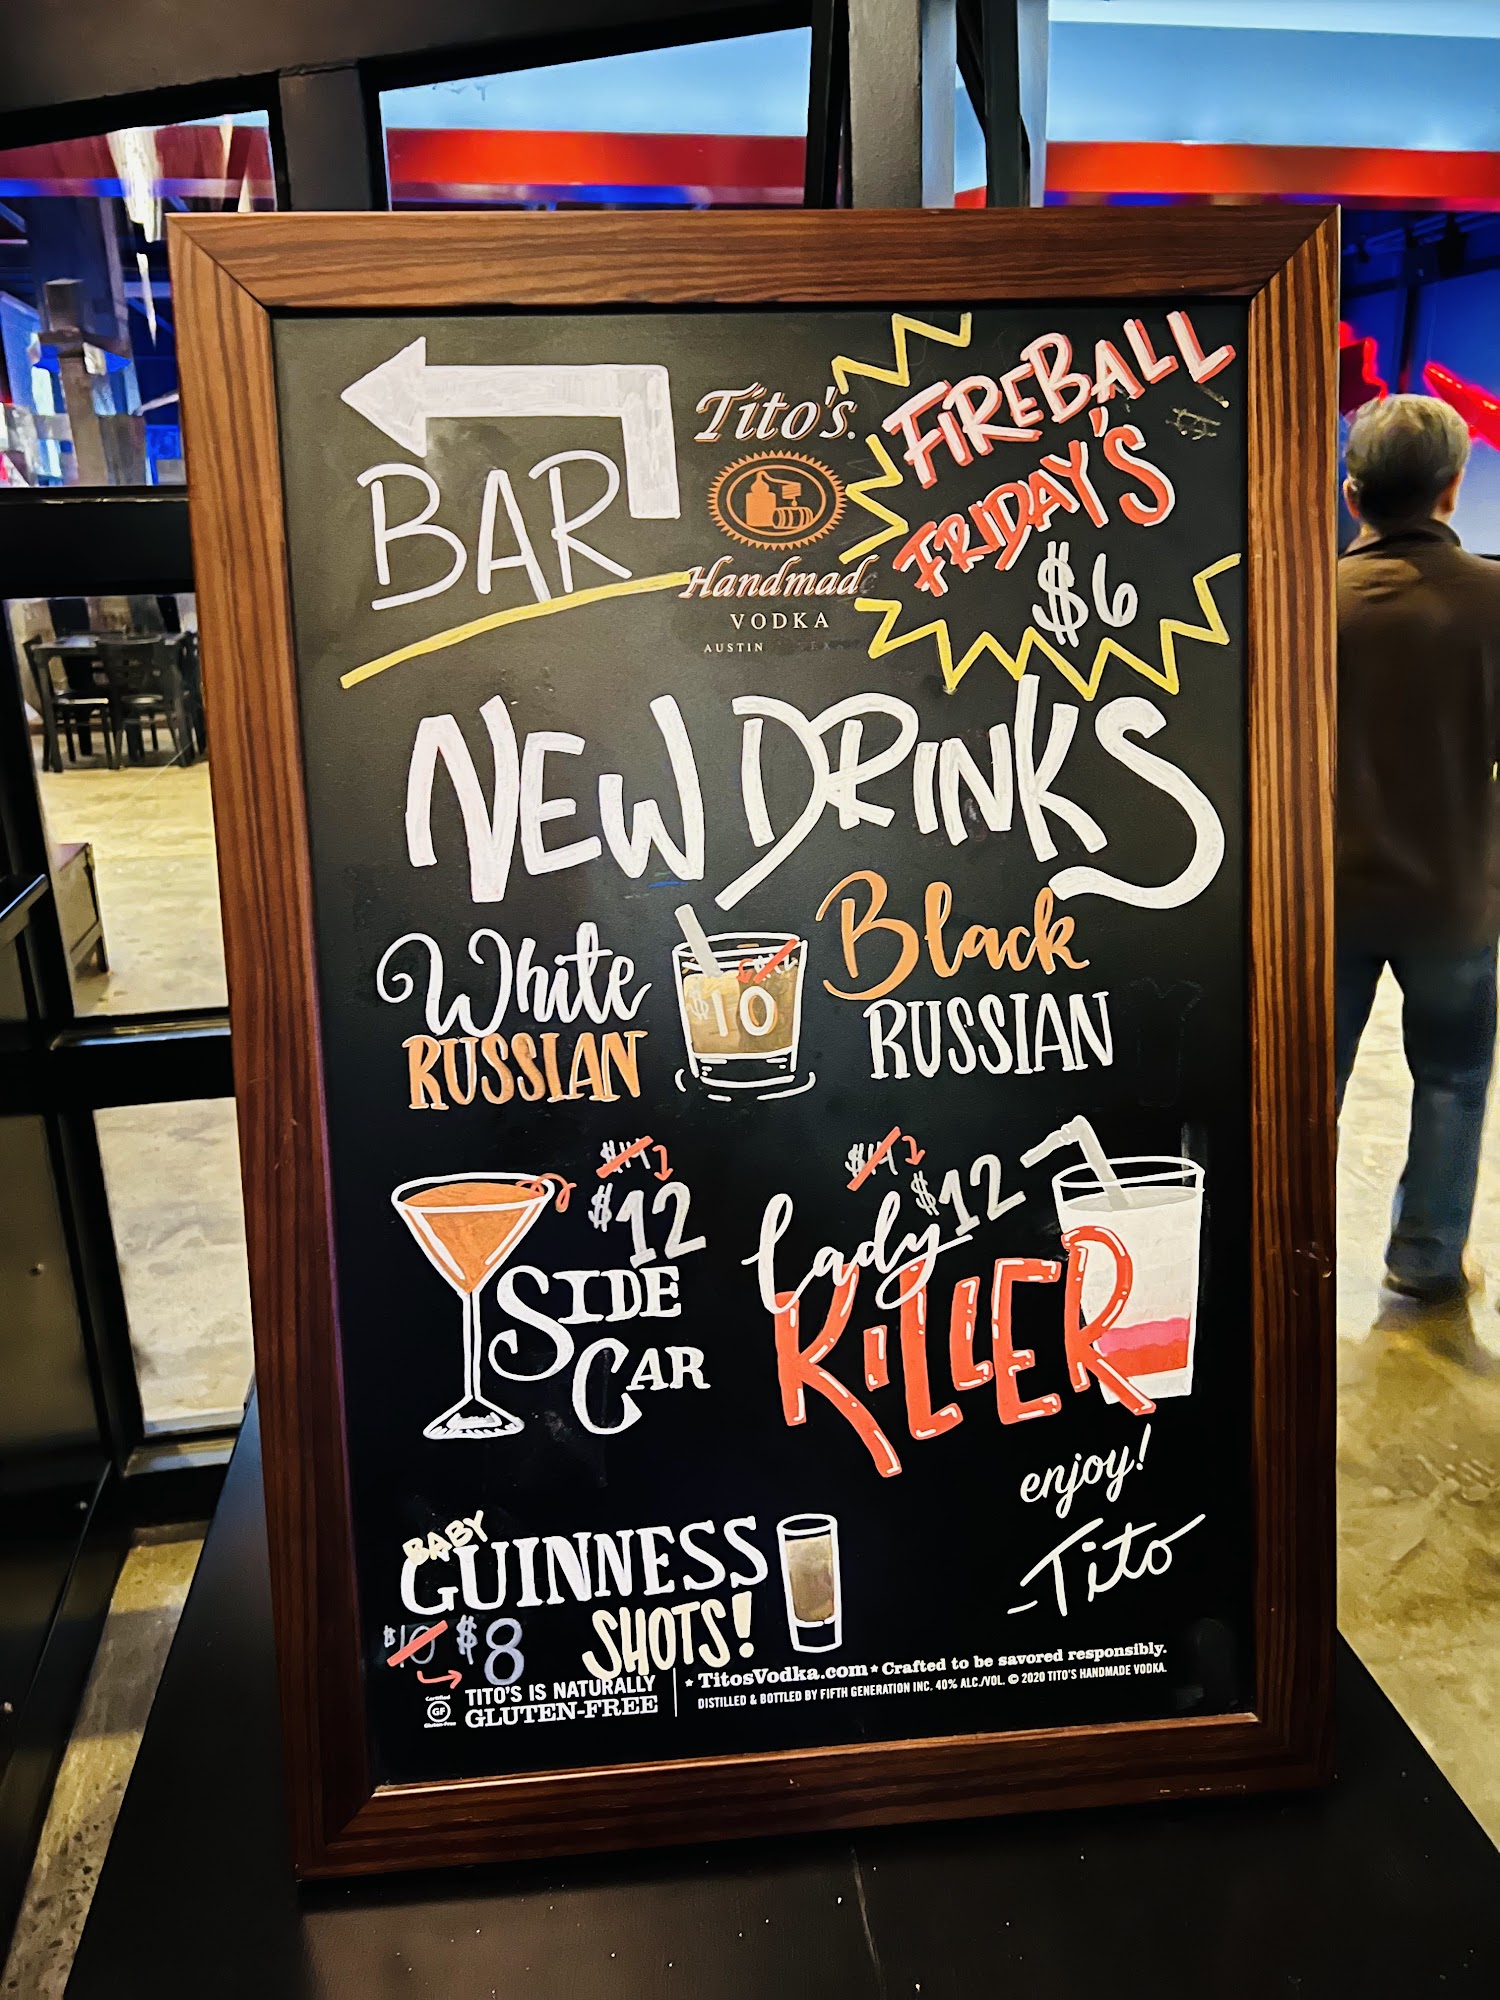 BAR
Tito's
Handmade
VODKA
AUSTIN TEXAS
FiREBALL
FRIDAY'S
$6
NEW DRINKS
White
RUSSIAN
$10
Black
RUSSIAN
$14
$12
SIDE
CAR
$14
$12
Lady
KiLLER
enjoy!
-Tito
BABY
GUINNESS
SHOTS!
$10 $8
Certified
GF
Gluten-Free
TITO'S IS NATURALLY
GLUTEN-FREE
★ TitosVodka.com ★ Crafted to be savored responsibly.
DISTILLED & BOTTLED BY FIFTH GENERATION INC. 40% ALC./VOL. © 2020 TITO'S HANDMADE VODKA.